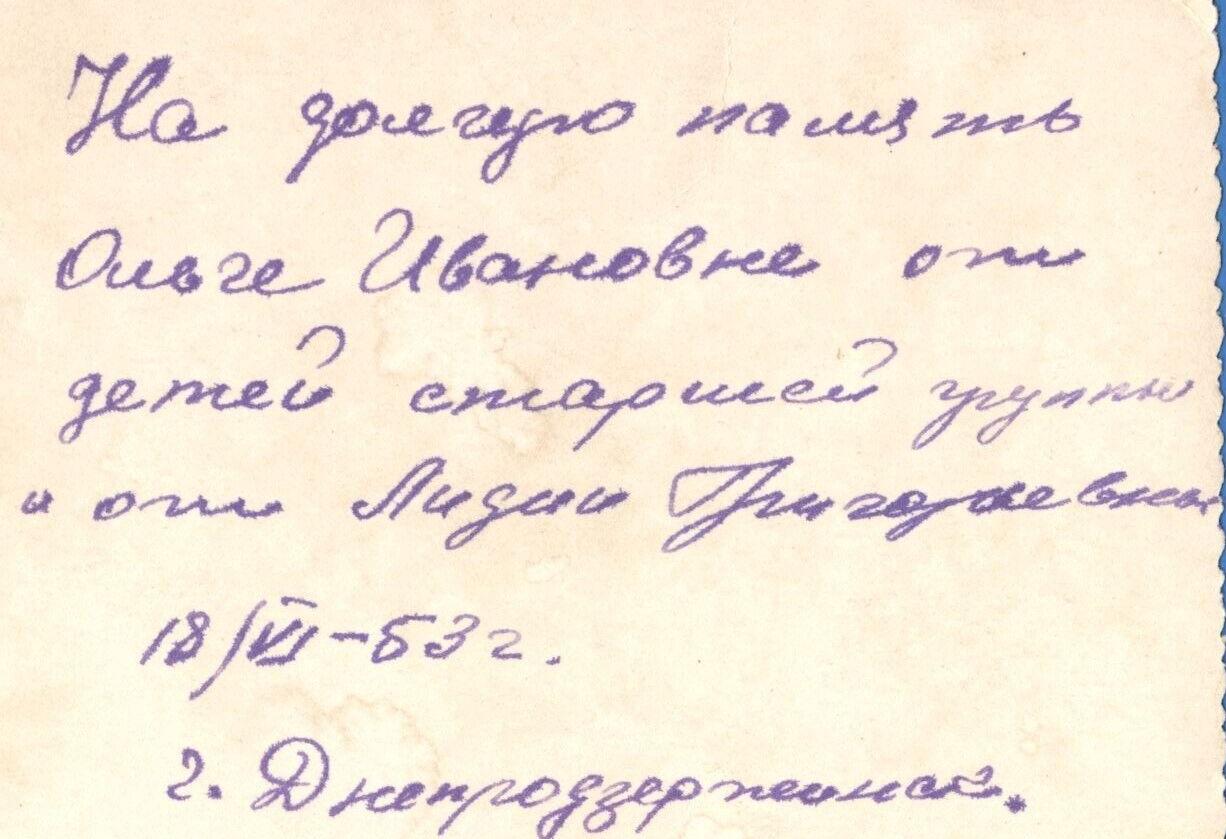 На долгую память
Ольге Ивановне от
детей старшей группы
и от Лидии Григорьевны
18/VI-53г.
г. Днепродзержинск.